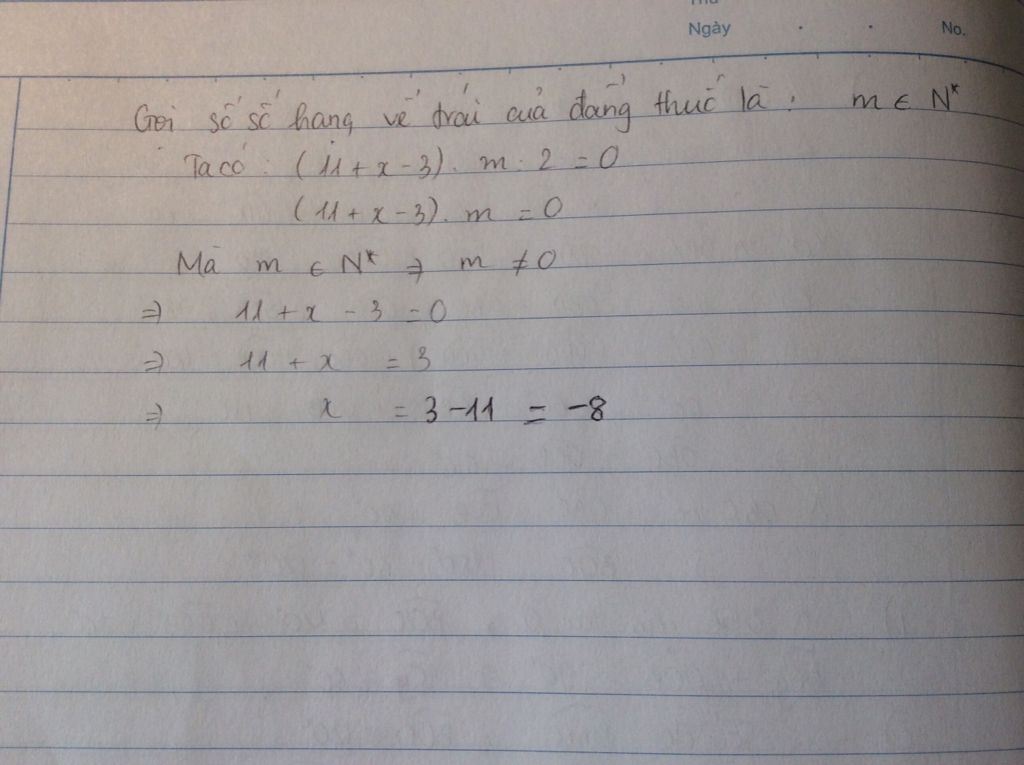 Thứ
Ngày . . No.
Gọi số số hạng vế trái của đẳng thức là : m ∈ N*
Ta có : (11 + x - 3) . m : 2 = 0
(11 + x - 3) . m = 0
Mà m ∈ N* ⇒ m ≠ 0
⇒ 11 + x - 3 = 0
⇒ 11 + x = 3
⇒ x = 3 - 11 = -8